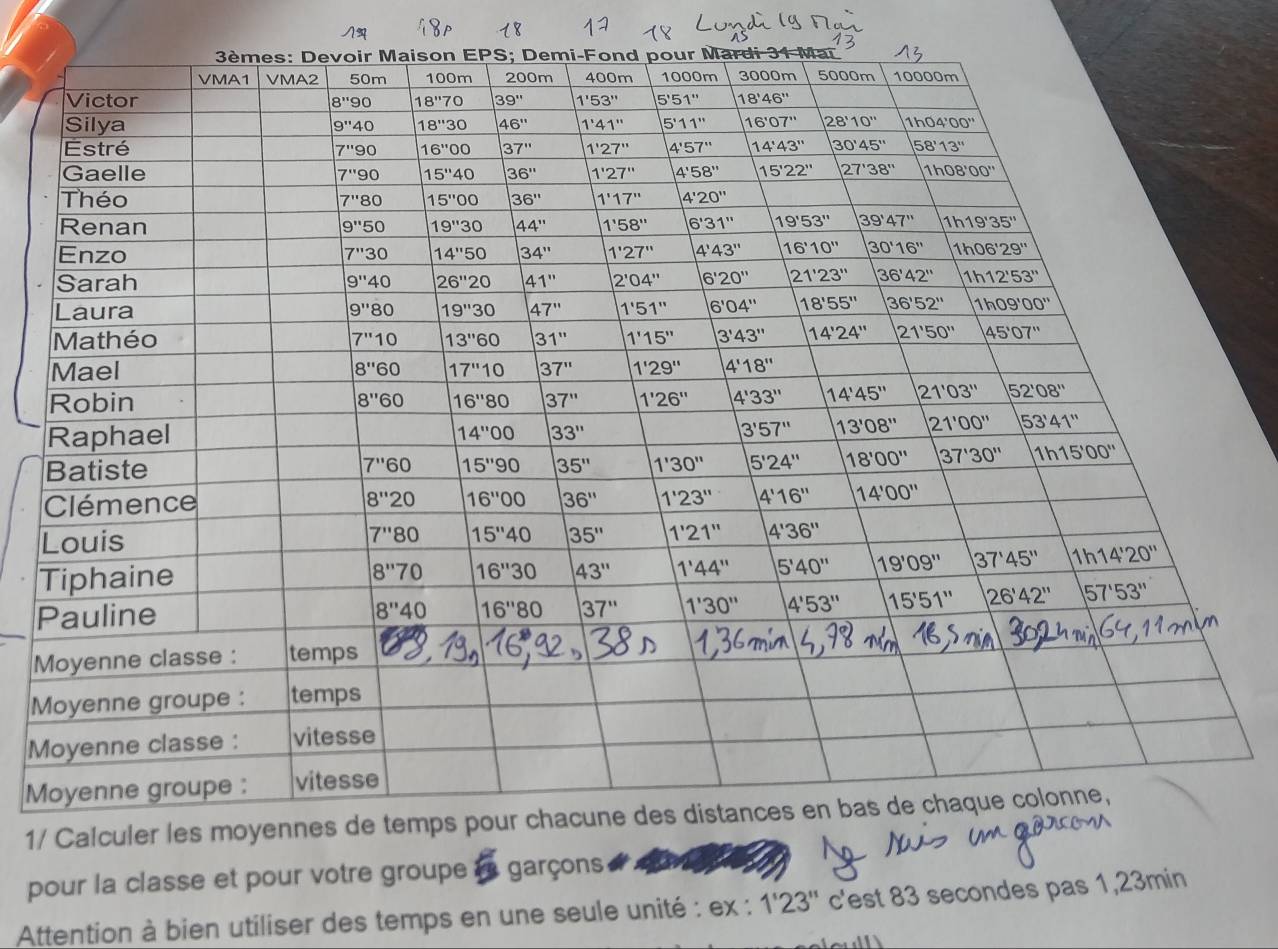 18s 18 17 18 Lundi 19 Mai
15 13 13
3èmes: Devoir Maison EPS; Demi-Fond pour Mardi 31 Mai
VMA1 VMA2 50m 100m 200m 400m 1000m 3000m 5000m 10000m
Victor 8"90 18"70 39" 1'53" 5'51" 18'46"
Silya 9"40 18"30 46" 1'41" 5'11" 16'07" 28'10" 1h04'00"
Estré 7"90 16"00 37" 1'27" 4'57" 14'43" 30'45" 58'13"
Gaelle 7"90 15"40 36" 1'27" 4'58" 15'22" 27'38" 1h08'00"
Théo 7"80 15"00 36" 1'17" 4'20"
Renan 9"50 19"30 44" 1'58" 6'31" 19'53" 39'47" 1h19'35"
Enzo 7"30 14"50 34" 1'27" 4'43" 16'10" 30'16" 1h06'29"
Sarah 9"40 26"20 41" 2'04" 6'20" 21'23" 36'42" 1h12'53"
Laura 9"80 19"30 47" 1'51" 6'04" 18'55" 36'52" 1h09'00"
Mathéo 7"10 13"60 31" 1'15" 3'43" 14'24" 21'50" 45'07"
Mael 8"60 17"10 37" 1'29" 4'18"
Robin 8"60 16"80 37" 1'26" 4'33" 14'45" 21'03" 52'08"
Raphael 14"00 33" 3'57" 13'08" 21'00" 53'41"
Batiste 7"60 15"90 35" 1'30" 5'24" 18'00" 37'30" 1h15'00"
Clémence 8"20 16"00 36" 1'23" 4'16" 14'00"
Louis 7"80 15"40 35" 1'21" 4'36"
Tiphaine 8"70 16"30 43" 1'44" 5'40" 19'09" 37'45" 1h14'20"
Pauline 8"40 16"80 37" 1'30" 4'53" 15'51" 26'42" 57'53"
Moyenne classe : temps 8,19s 16,92s 38s 1,36min 4,78 min 16,5min 30,24min 64,11min
Moyenne groupe : temps
Moyenne classe : vitesse
Moyenne groupe : vitesse
1/ Calculer les moyennes de temps pour chacune des distances en bas de chaque colonne,
pour la classe et pour votre groupe garçons Je suis un garçon
Attention à bien utiliser des temps en une seule unité : ex : 1'23" c'est 83 secondes pas 1,23min